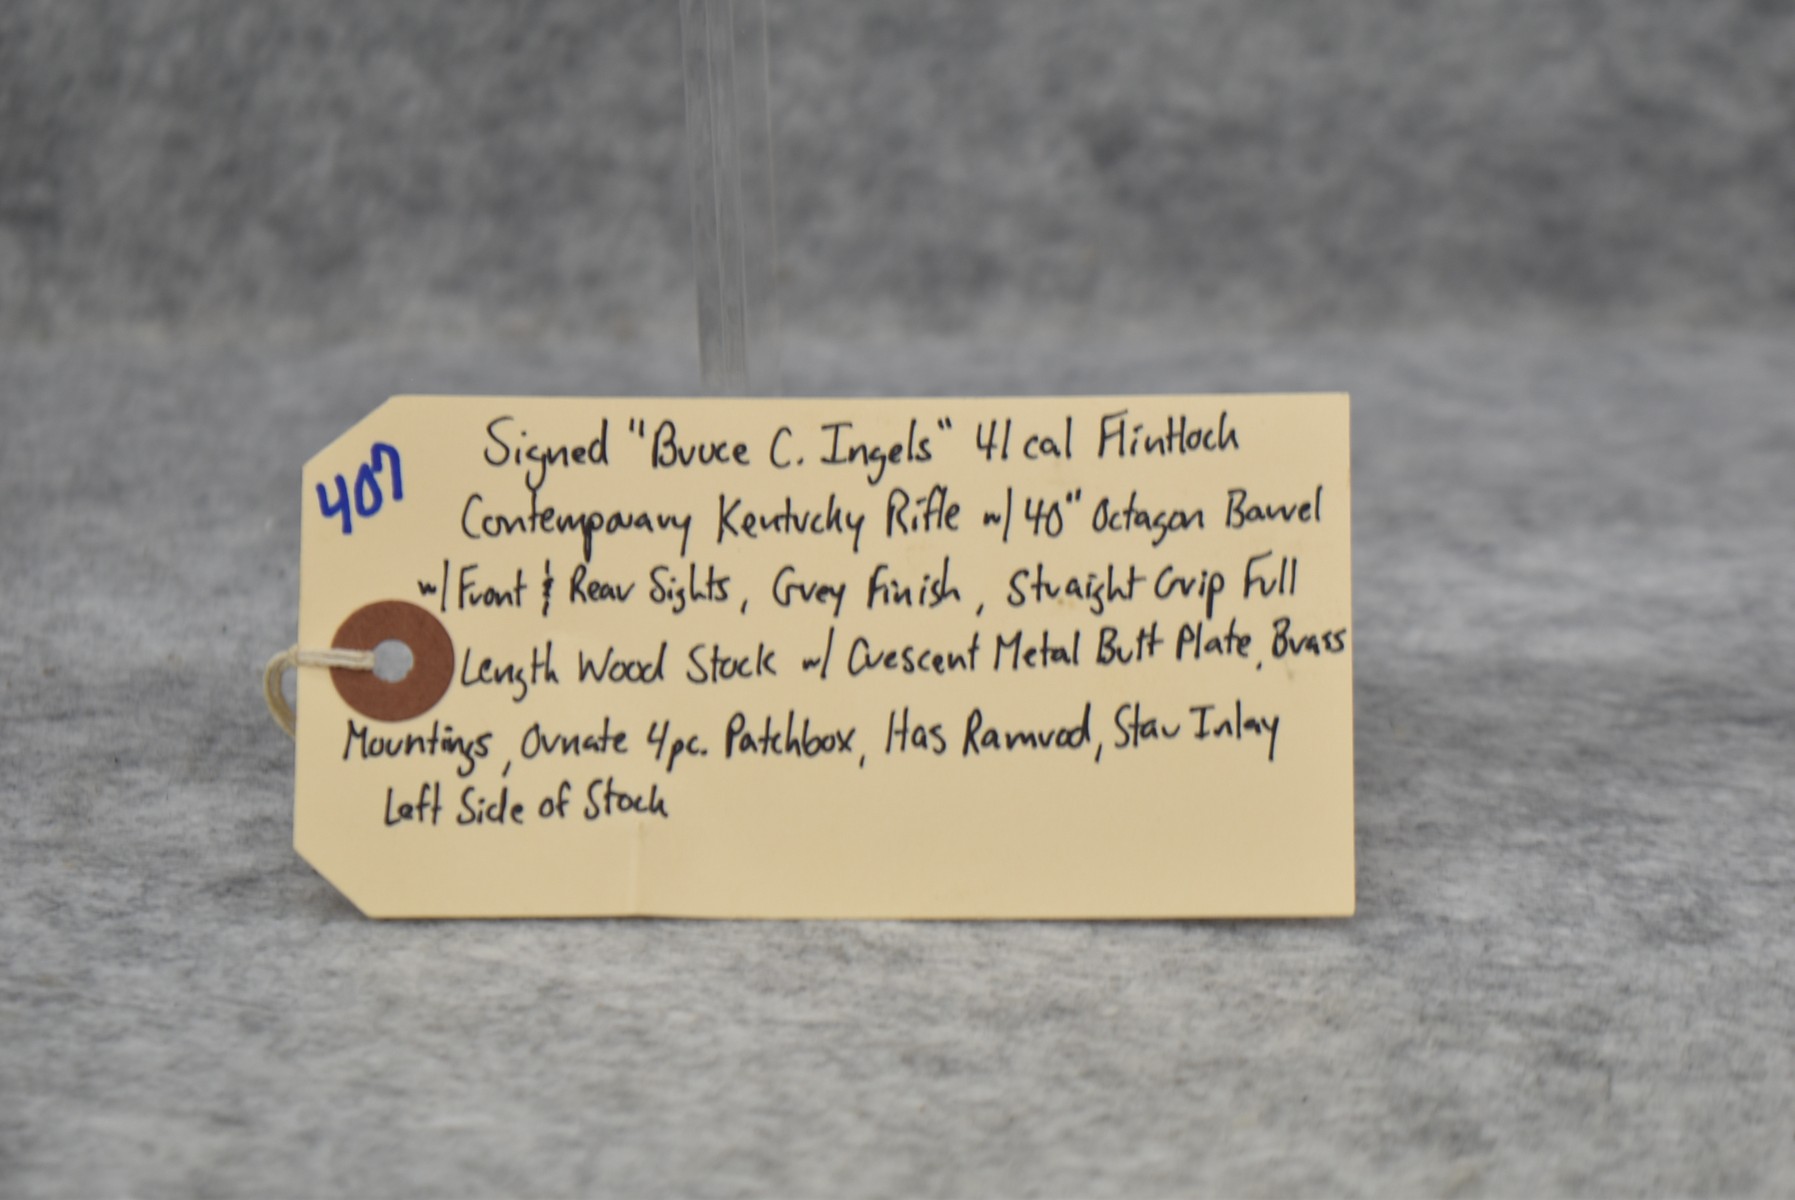 407
Signed "Bruce C. Ingels" 41 cal Flintlock
Contemporary Kentucky Rifle w/ 40" Octagon Barrel
w/ Front & Rear Sights, Grey Finish, Straight Grip Full
Length Wood Stock w/ Crescent Metal Butt Plate, Brass
Mountings, Ornate 4pc. Patchbox, Has Ramrod, Star Inlay
Left Side of Stock